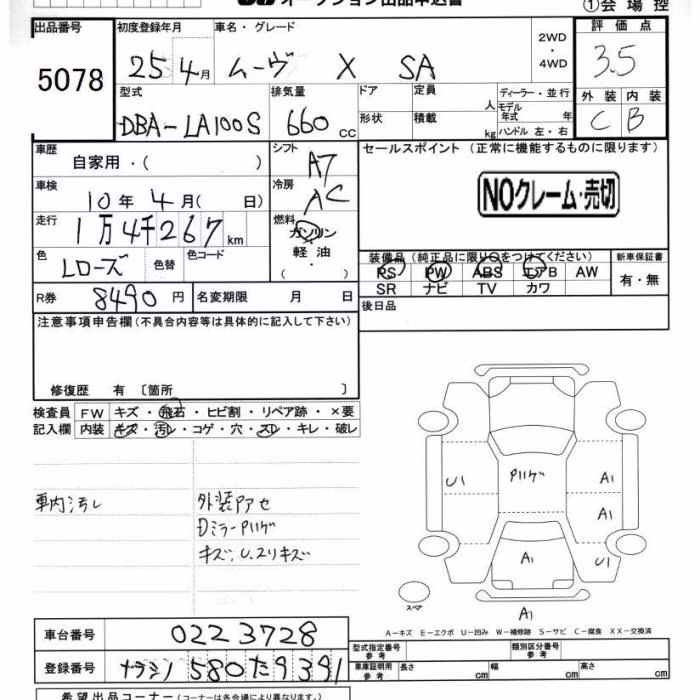 オークション出品申込書
①会場控
出品番号 初度登録年月 車名・グレード 2WD・4WD 評価点
5078 25 4月 ムーヴ X SA 3.5
型式 排気量 ドア 定員 人 ディーラー・並行 外装 内装
DBA-LA100S 660cc 形状 積載 kg モデル年式 年 C B
ハンドル 左・右
車歴 自家用・( ) シフト A7 セールスポイント(正常に機能するものに限ります)
車検 10年 4月( 日) 冷房 AC NOクレーム・売切
走行 1万4千267km 燃料 ガソリン・軽油・( )
色 Lローズ 色替 色コード 装備品(純正品に限り○をつけてください) 新車保証書
PS PW ABS エアB AW 有・無
SR ナビ TV カワ
R券 8490円 名変期限 月 日 後日品
注意事項申告欄(不具合内容等は具体的に記入して下さい)
修復歴 有 [箇所 ]
検査員 FW キズ・飛石・ヒビ割・リペア跡・×要
記入欄 内装 キズ・汚レ・コゲ・穴・スレ・キレ・破レ
車内汚レ 外装アセ
Dミラー
キズ、U、スリキズ
U1 A1
A1
A1 U1
スペア A1
A-キズ E-エクボ U-凹み W-補修跡 S-サビ C-腐食 XX-交換済
車台番号 0223728
型式指定番号 類別区分番号
参考 参考
登録番号 ナラシン580た9391
車庫証明用参考 長さ cm 幅 cm 高さ cm
希望出品コーナー(コーナーは各会場により異なります。)